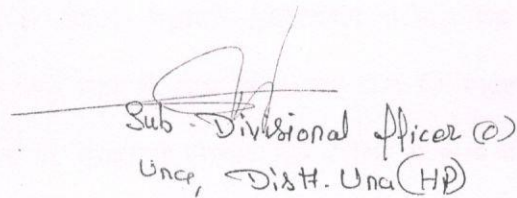 Sub-Divisional Officer (C)
Una, Distt. Una (HP)